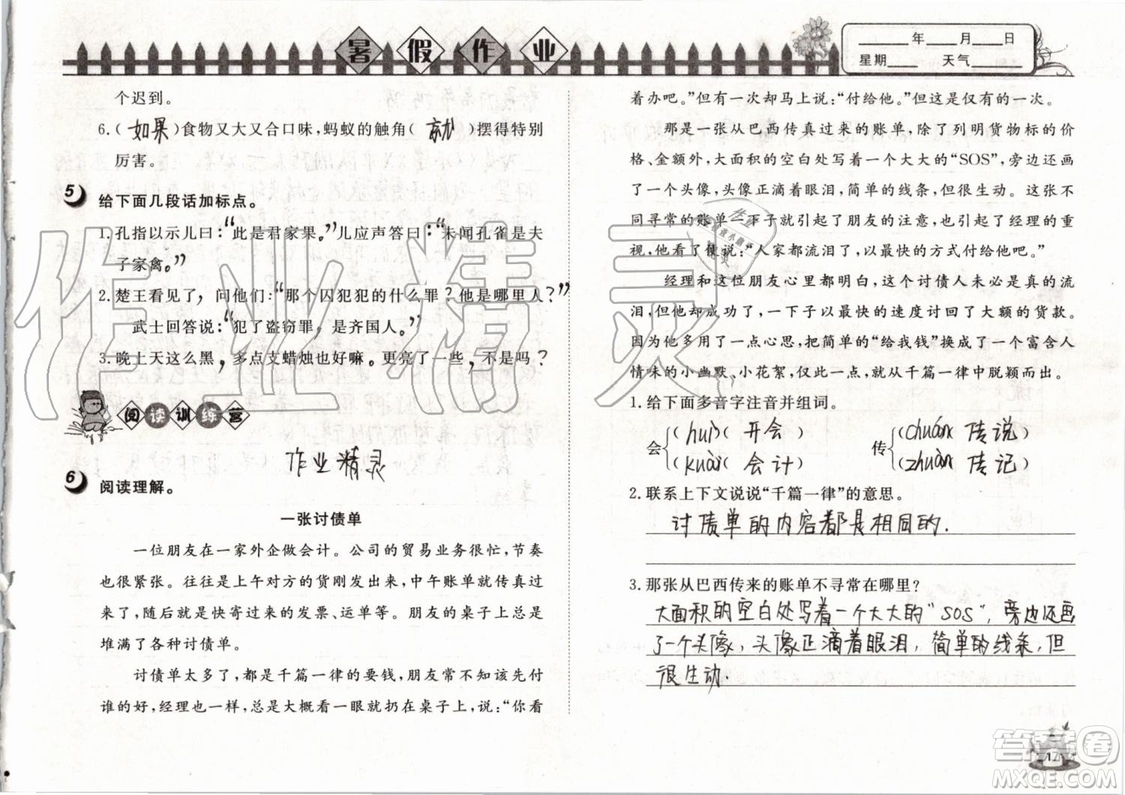 暑假作业
____年____月____日
星期____ 天气____
个迟到。
6.(如果)食物又大又合口味,蚂蚁的触角(就)摆得特别
厉害。
5 给下面几段话加标点。
1.孔指以示儿曰:“此是君家果。”儿应声答曰:“未闻孔雀是夫
子家禽。”
2.楚王看见了,问他们:“那个囚犯犯的什么罪?他是哪里人?”
武士回答说:“犯了盗窃罪,是齐国人。”
3.晚上天这么黑,多点支蜡烛也好嘛。更亮了一些,不是吗?
阅读训练营
作业精灵
6 阅读理解。
一张讨债单
一位朋友在一家外企做会计。公司的贸易业务很忙,节奏
也很紧张。往往是上午对方的货刚发出来,中午账单就传真
过来了,随后就是快寄过来的发票、运单。朋友的桌子上总是
堆满了各种讨债单。
讨债单太多了,都是千篇一律的要钱,朋友不知该先付
谁的好,经理也一样,总是大概看一眼就扔在桌子上,说:“你看
着办吧。”但有一次却马上说:“付给他。”但这是仅有的一次。
那是一张从巴西传真过来的账单,除了列明货物标的价
格、金额外,大面积的空白处写着一个大大的“SOS”,旁边还画
了一个头像,头像正滴着眼泪,简单的线条,但很生动。这张不
同寻常的账单一下子就引起了朋友的注意,也引起了经理的重
视,他看了便说:“人家都流泪了,以最快的方式付给他吧。”
经理和这位朋友心里都明白,这个讨债人未必是真的流
泪,但他却成功了,一下子以最快的速度讨回了大额的货款。
因为他多用了一点心思,把简单的“给我钱”换成了一个富含人
情味的小幽默、小花絮,仅此一点,就从千篇一律中脱颖而出。
1.给下面多音字注音并组词。
会 (huì)(开会) 传 (chuán 传说)
(kuài)(会计) (zhuàn 传记)
2.联系上下文说说“千篇一律”的意思。
讨债单的内容都是相同的.
3.那张从巴西传来的账单不寻常在哪里?
大面积的空白处写着一个大大的“SOS”,旁边还画
了一个头像,头像正滴着眼泪,简单的线条,但
很生动.
12
作业精灵
答案卷
MXQE.COM